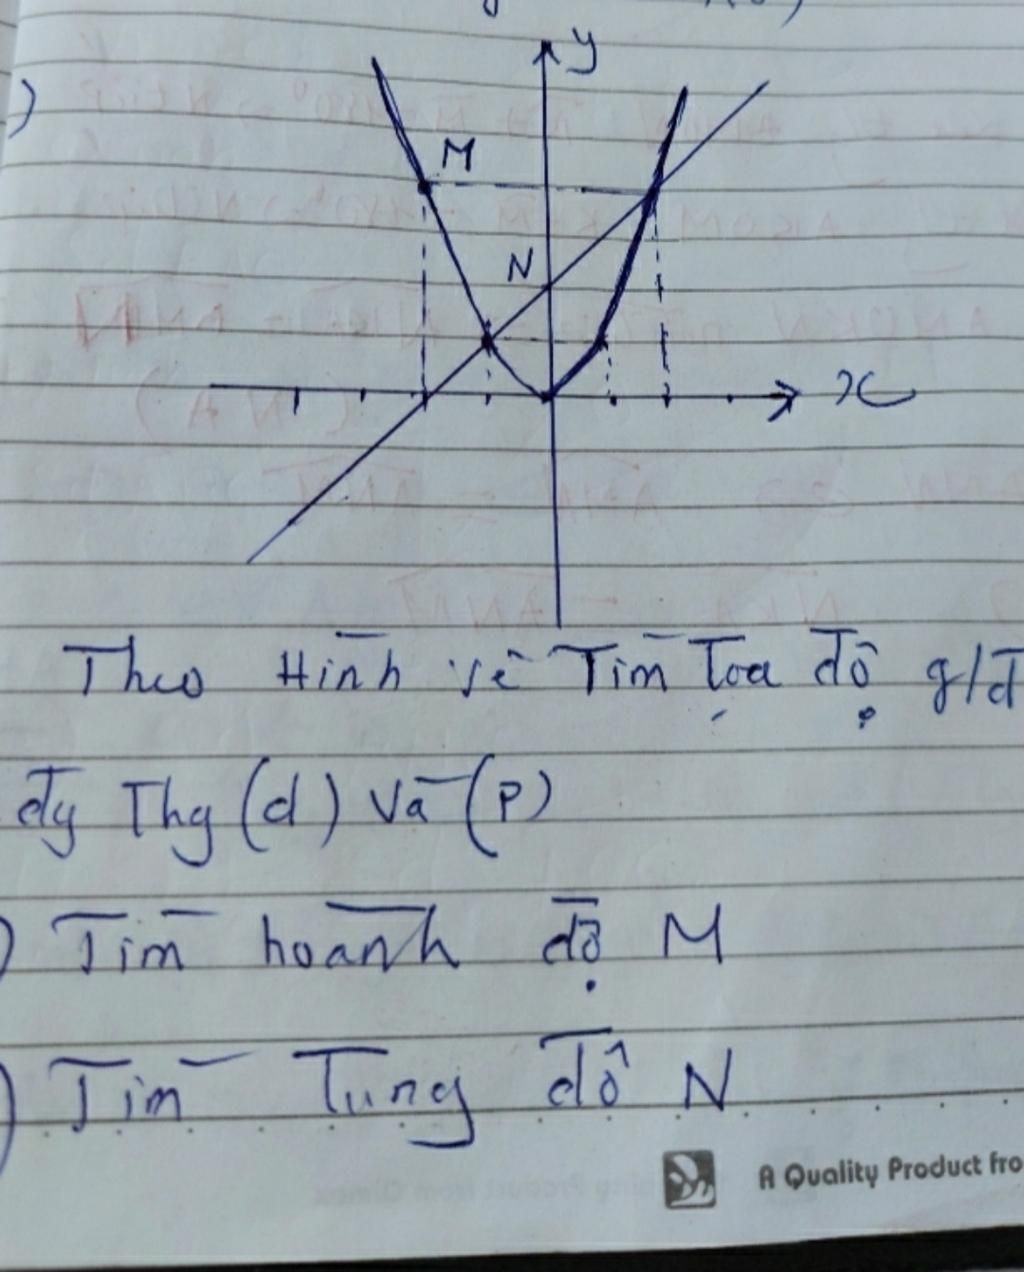 y
M
N
x
Theo Hình vẽ Tìm Tọa độ g/đ
đg Thg (d) Và (P)
) Tìm hoành độ M
) Tìm Tung độ N
A Quality Product fro